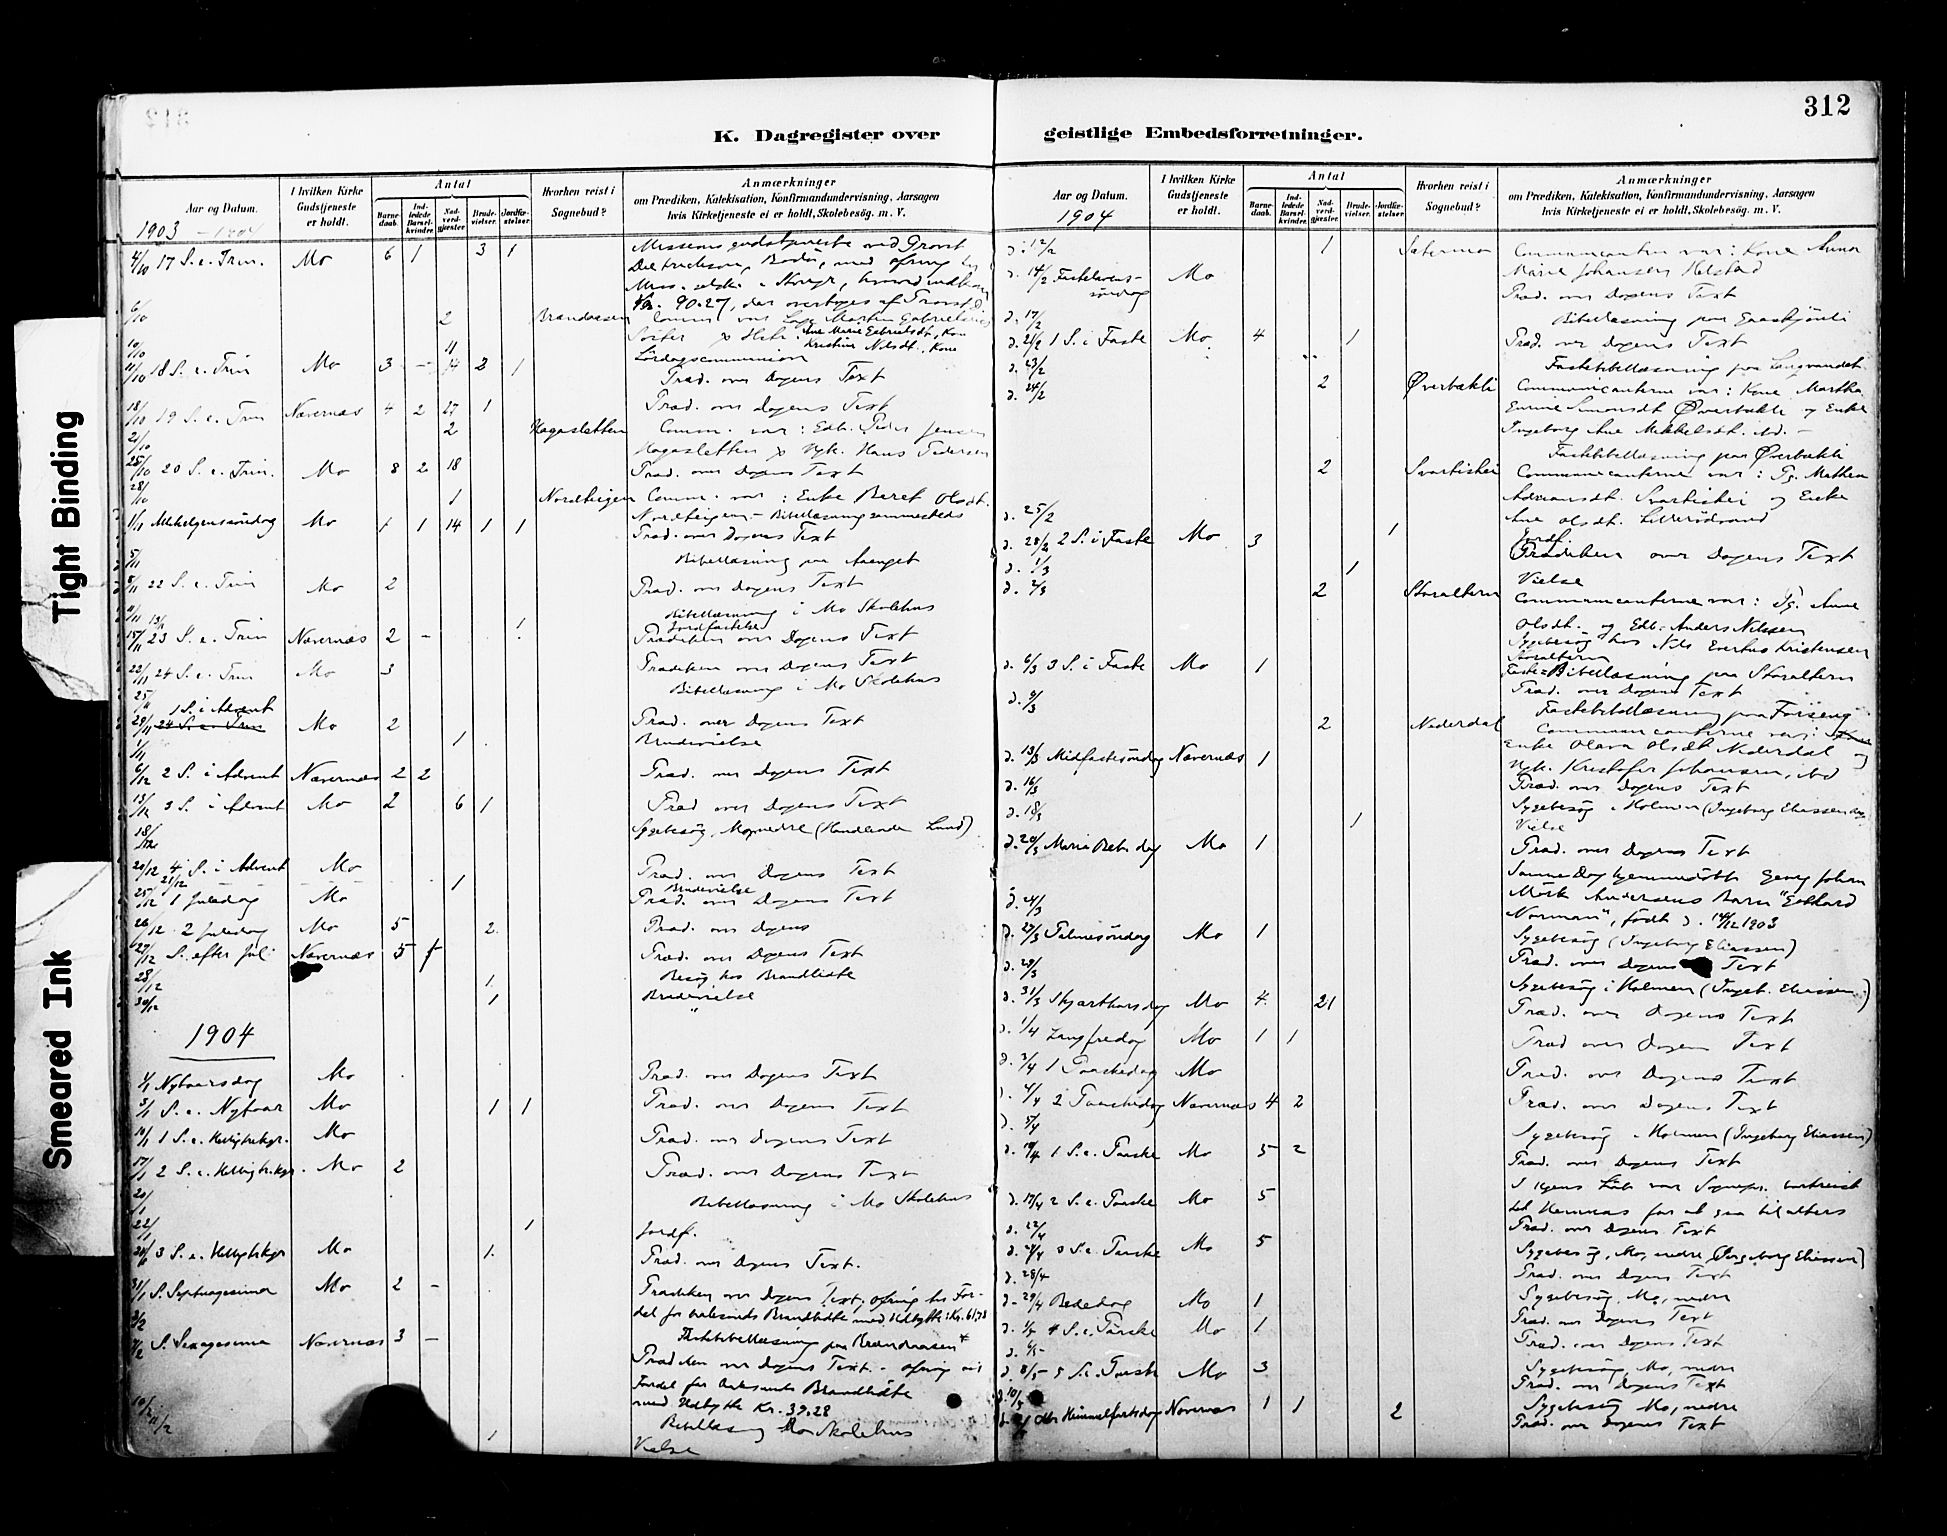 Tight Binding
Smeared Ink
312
K. Dagregister over
geistlige Embedsforretninger.
Aar og Datum.
I hvilken Kirke Gudstjeneste er holdt.
Antal
Barnedaab.
Indledede Barselkvinder.
Nadverdgjæster
Brudevielser.
Jordfæstelser
Hvorhen reist i Sognebud?
Anmærkninger
om Prædiken, Katekisation, Konfirmandundervisning, Aarsagen
hvis Kirketjeneste ei er holdt, Skolebesög. m. V.
1903 - 1904
4/10 17 S. e. Trin. Mo 6 1 3 1 Missionsgudstjeneste ved Provst
Bodö, med ofring
Kr. 90.27, der
6/10 2
10/10 Lördagscommunion
11/10 18 S. e. Trin Mo 3 - 14 2 1 Præd. over Dagens Text
18/10 19 S. e. Trin Nævernæs 4 2 27 1 Præd. over Dagens Text
21/10 2 Hagasletten Comm. var: Edb. Peder Jensen
Hagasletten Hans Pedersen
25/10 20 S. e. Trin. Mo 8 2 18 Præd. over Dagens Text
28/10 1 Comm. var: Enke Beret Olsdt.
Bibellæsning sammesteds
1/11 Mo 1 1 14 1 1 Præd. over Dagens Text
5/11 Bibellæsning paa
8/11 22 S. e. Trin Mo 2 Præd. over Dagens Text
Bibellæsning i Mo Skolehus
13/11 1 Jordfæstelse
15/11 23 S. e. Trin Nævernæs 2 - Prædiken over Dagens Text
22/11 24 S. e. Trin Mo 3 Prædiken over Dagens Text
25/11 Bibellæsning i Mo Skolehus
1 S. i Advent
29/11 24 S. e. Trin Mo 2 Præd. over Dagens Text
1 Brudevielse
6/12 2 S. i Advent Nævernæs 2 2 Præd. over Dagens Text
13/12 3 S. i Advent Mo 2 6 1 Præd over Dagens Text
18/12 Sygebesög, Mo, nedre (Handlende Lund)
20/12 4 S. i Advent Mo Præd. over Dagens Text
21/12 1 Brudevielse
25/12 1 Juledag Mo Præd. over Dagens Text
26/12 2 Juledag Mo 5 2 Præd. over Dagens
27/12 S. efter Jul Nævernæs 5 Præd. over Dagens Text
28/12 1 Besög hos
30/12 1 Brudevielse
"
1904
1/1 Nytaarsdag Mo Præd. over Dagens Text
3/1 S. e. Nytaar Mo 1 1 Præd. over Dagens Text
10/1 1 S. e. Helligtrekgr. Mo Præd. over Dagens Text
17/1 2 S. e. Helligtrekgr. Mo 2 Præd. over Dagens Text
20/1 Bibellæsning i Mo Skolehus
22/1 1 Jordf.
3 S. e. Helligtrekgr Mo 1 Præd. over Dagens Text.
31/1 S. Septuagesima Mo 2 - Prædiken over Dagens Text, ofring til For-
del for Aalesunds Brandlidte med Udbytte: Kr. 61,78
3/2 Fastebibellæsning paa Brændaasen
7/2 S. Sexagesima Nævernæs 3 - Prædiken over Dagens Text. - ofring
Fordel for Aalesunds Brandlidte
med Udbytte Kr. 39.28
10/2 Bibellæsning Mo Skolehus
11/2 1 Vielse
Aar og Datum.
I hvilken Kirke Gudstjeneste er holdt.
Antal
Barnedaab.
Indledede Barselkvinder.
Nadverdgjæster
Brudevielser.
Jordfæstelser
Hvorhen reist i Sognebud?
Anmærkninger
om Prædiken, Katekisation, Konfirmandundervisning, Aarsagen
hvis Kirketjeneste ei er holdt, Skolebesög. m. V.
1904
d. 12/2 1 Communicanten var: Kone Anna
Marie Johansen
d. 14/2 Fastelavens-söndag Mo Præd. over Dagens Text
d. 17/2 Bibellæsning paa
d. 21/2 1 S. i Faste Mo 4 1 Præd. over Dagens Text
d. 23/2 Fastebibellæsning paa Langvandet
d. 24/2 2 Communicanterne var: Kone Martha
Simonsdt og Enke
Ingeborg Ane Mikkelsdt. ibd. -
Fastebibellæsning paa
2 Svartishei Communicanterne var: Pg. Mathea
Adriansdt. Svartishei og Enke
Ane Olsdt.
d. 25/2 1 Jordf.
d. 28/2 2 S. i Faste Mo 3 Prædiken over Dagens Text
d. 1/3 1 Vielse
d. 2/3 2 Storalteren Communicanterne var: Pg. Anne
Olsdt. og Edb. Anders Nilssen
Sygebesög hos Nils Evertus Kristensen
Storalteren
Faste-Bibellæsning paa Storalteren
d. 6/3 3 S. i Faste Mo 1 Præd. over Dagens Text
d. 9/3 Fastebibellæsning paa Forseng
2 Nederdal Communicanterne var:
Enke Olava Olsdt Nederdal og
Kristofer Johansen, ibd
d. 13/3 Midfastesöndag Nævernæs 1 Præd. over Dagens Text
d. 16/3 Sygebesög i Holmen (Ingeborg Eliassen
d. 18/3 1 Vielse
d. 20/3 Mariæ Beb. dag Mo 1 Præd. over Dagens Text
Samme Dag hjemmedöbt Georg Johan
Mörk Andersens Barn "
Norman", födt d. 14/12 1903
d. 24/3 Sygebesög (Ingeborg Eliassen)
d. 27/3 Palmesöndag Mo 1 Præd. over Dagens Text
d. 29/3 Sygebesög i Holmen (Ingeb. Eliassen)
d. 31/3 Skjærthorsdag Mo 4 21 Præd. over Dagens Text
d. 1/4 Langfredag Mo 1 1 Præd over Dagens Text
d. 3/4 1 Paaskedag Mo Præd. over Dagens Text
d. 4/4 2 Paaskedag Nævernæs 4 2 Præd. over Dagens Text
d. 5/4 Sygebesög i Holmen (Ingeborg Eliassen)
d. 10/4 1 S. e. Paaske Mo 5 2 Præd. over Dagens Text
I Ugens Löb var Sognepr. bortreist
til Hemnæs for at gaa til alters
d. 17/4 2 S. e. Paaske Mo 5 Præd. over Dagens Text
d. 22/4 Sygebesög, Mo, nedre (Ingeborg Eliassen)
d. 24/4 3 S. e. Paaske Mo 5 Præd. over Dagens Text
d. 28/4 Sygebesög, Mo, nedre
d. 29/4 Bededag Mo 1 Præd. over Dagens Text
d. 1/5 4 S. e. Paaske Mo 1 Præd. over Dagens Text
d. 6/5 Sygebesög, Mo, nedre
d. 8/5 5 S. e. Paaske Mo 3 Præd. over Dagens Text
d. 10/5 Sygebesög Mo, nedre
Himmelfartsdag Nævernæs 1 1 2 Præd. over Dagens Text